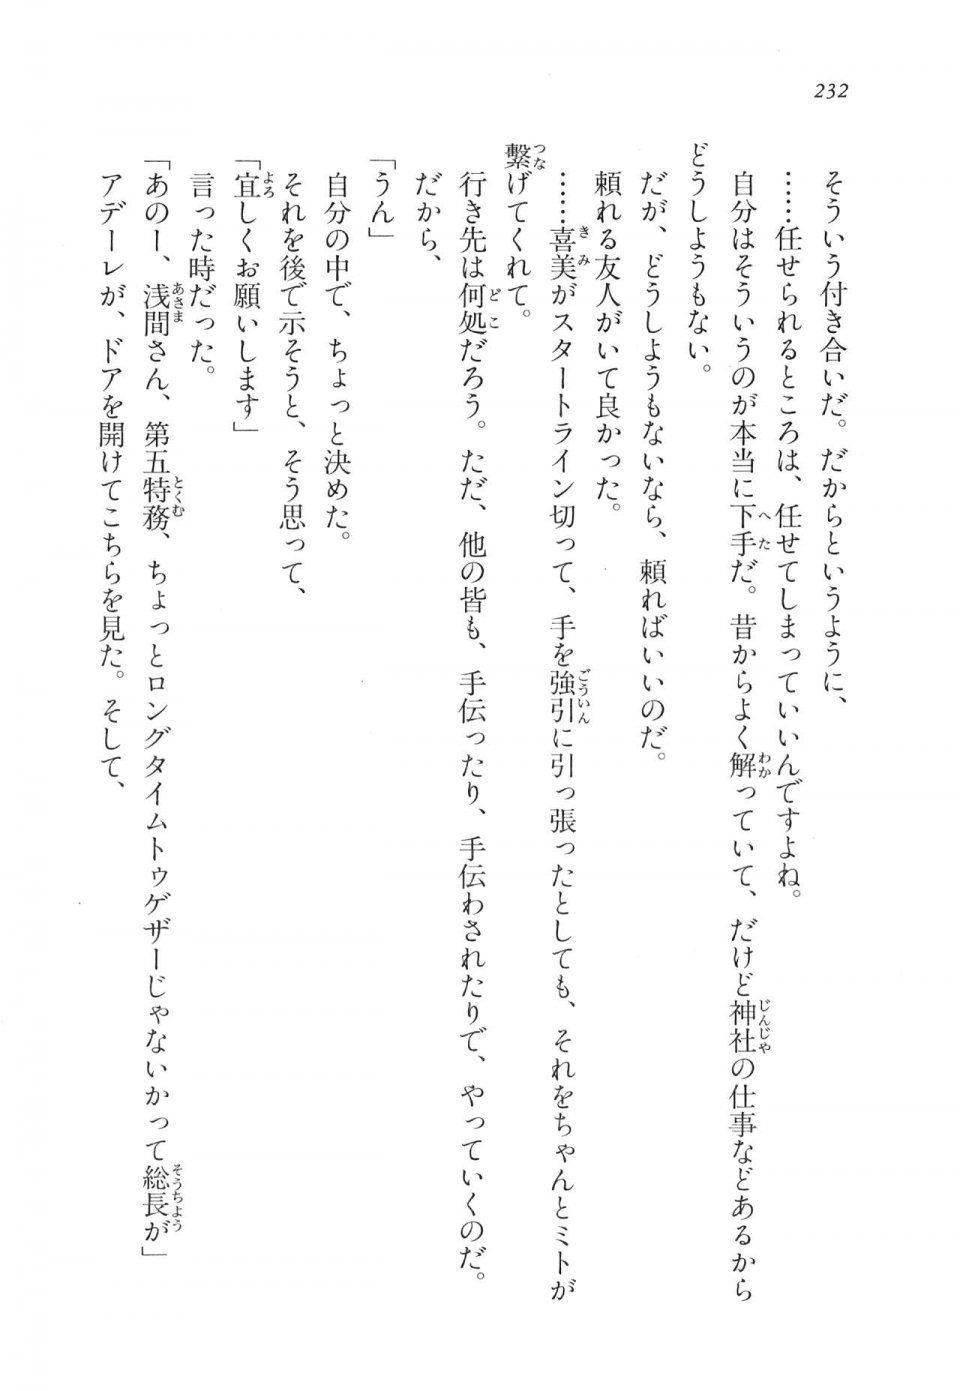 232
そういう付き合いだ。だからというように、
……任せられるところは、任せてしまっていいんですよね。
自分はそういうのが本当に下手だ。昔からよく解っていて、だけど神社の仕事などあるから
どうしようもない。
だが、どうしようもないなら、頼ればいいのだ。
頼れる友人がいて良かった。
……喜美がスタートライン切って、手を強引に引っ張ったとしても、それをちゃんとミトが
繋げてくれて。
行き先は何処だろう。ただ、他の皆も、手伝ったり、手伝わされたりで、やっていくのだ。
だから、
「うん」
自分の中で、ちょっと決めた。
それを後で示そうと、そう思って、
「宜しくお願いします」
言った時だった。
「あのー、浅間さん、第五特務、ちょっとロングタイムトゥゲザーじゃないかって総長が」
アデーレが、ドアを開けてこちらを見た。そして、